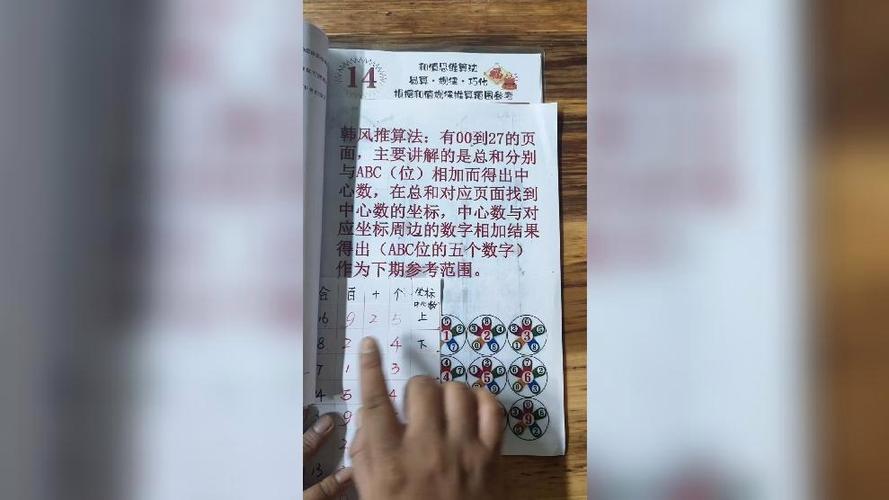 14
和值思维算法
易算·规律·巧化
根据和值规律推算范围参考
韩风推算法：有00到27的页
面，主要讲解的是总和分别
与ABC（位）相加而得出中
心数，在总和对应页面找到
中心数的坐标，中心数与对
应坐标周边的数字相加结果
得出（ABC位的五个数字）
作为下期参考范围。
合 百 十 个 坐标
中心数
16 9 2 5 上
8 2 4 下
7 1 3
4 5 4
9
2
13
1 2 3
4 5 6
9